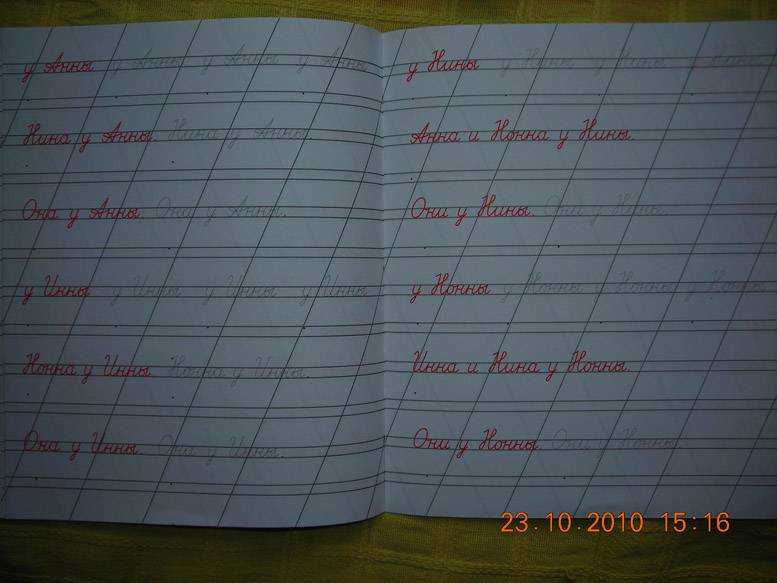 у Анны у Анны у Анны у Анны
Нина у Анны. Нина у Анны.
Она у Анны. Она у Анны.
у Инны у Инны у Инны у Инны
Нонна у Инны. Нонна у Инны.
Она у Инны. Она у Инны.
у Нины у Нины у Нины у Нины
Анна и Нонна у Нины.
Они у Нины. Они у Нины.
у Нонны у Нонны у Нонны у Нонны
Инна и Нина у Нонны.
Они у Нонны. Они у Нонны.
23.10.2010 15:16